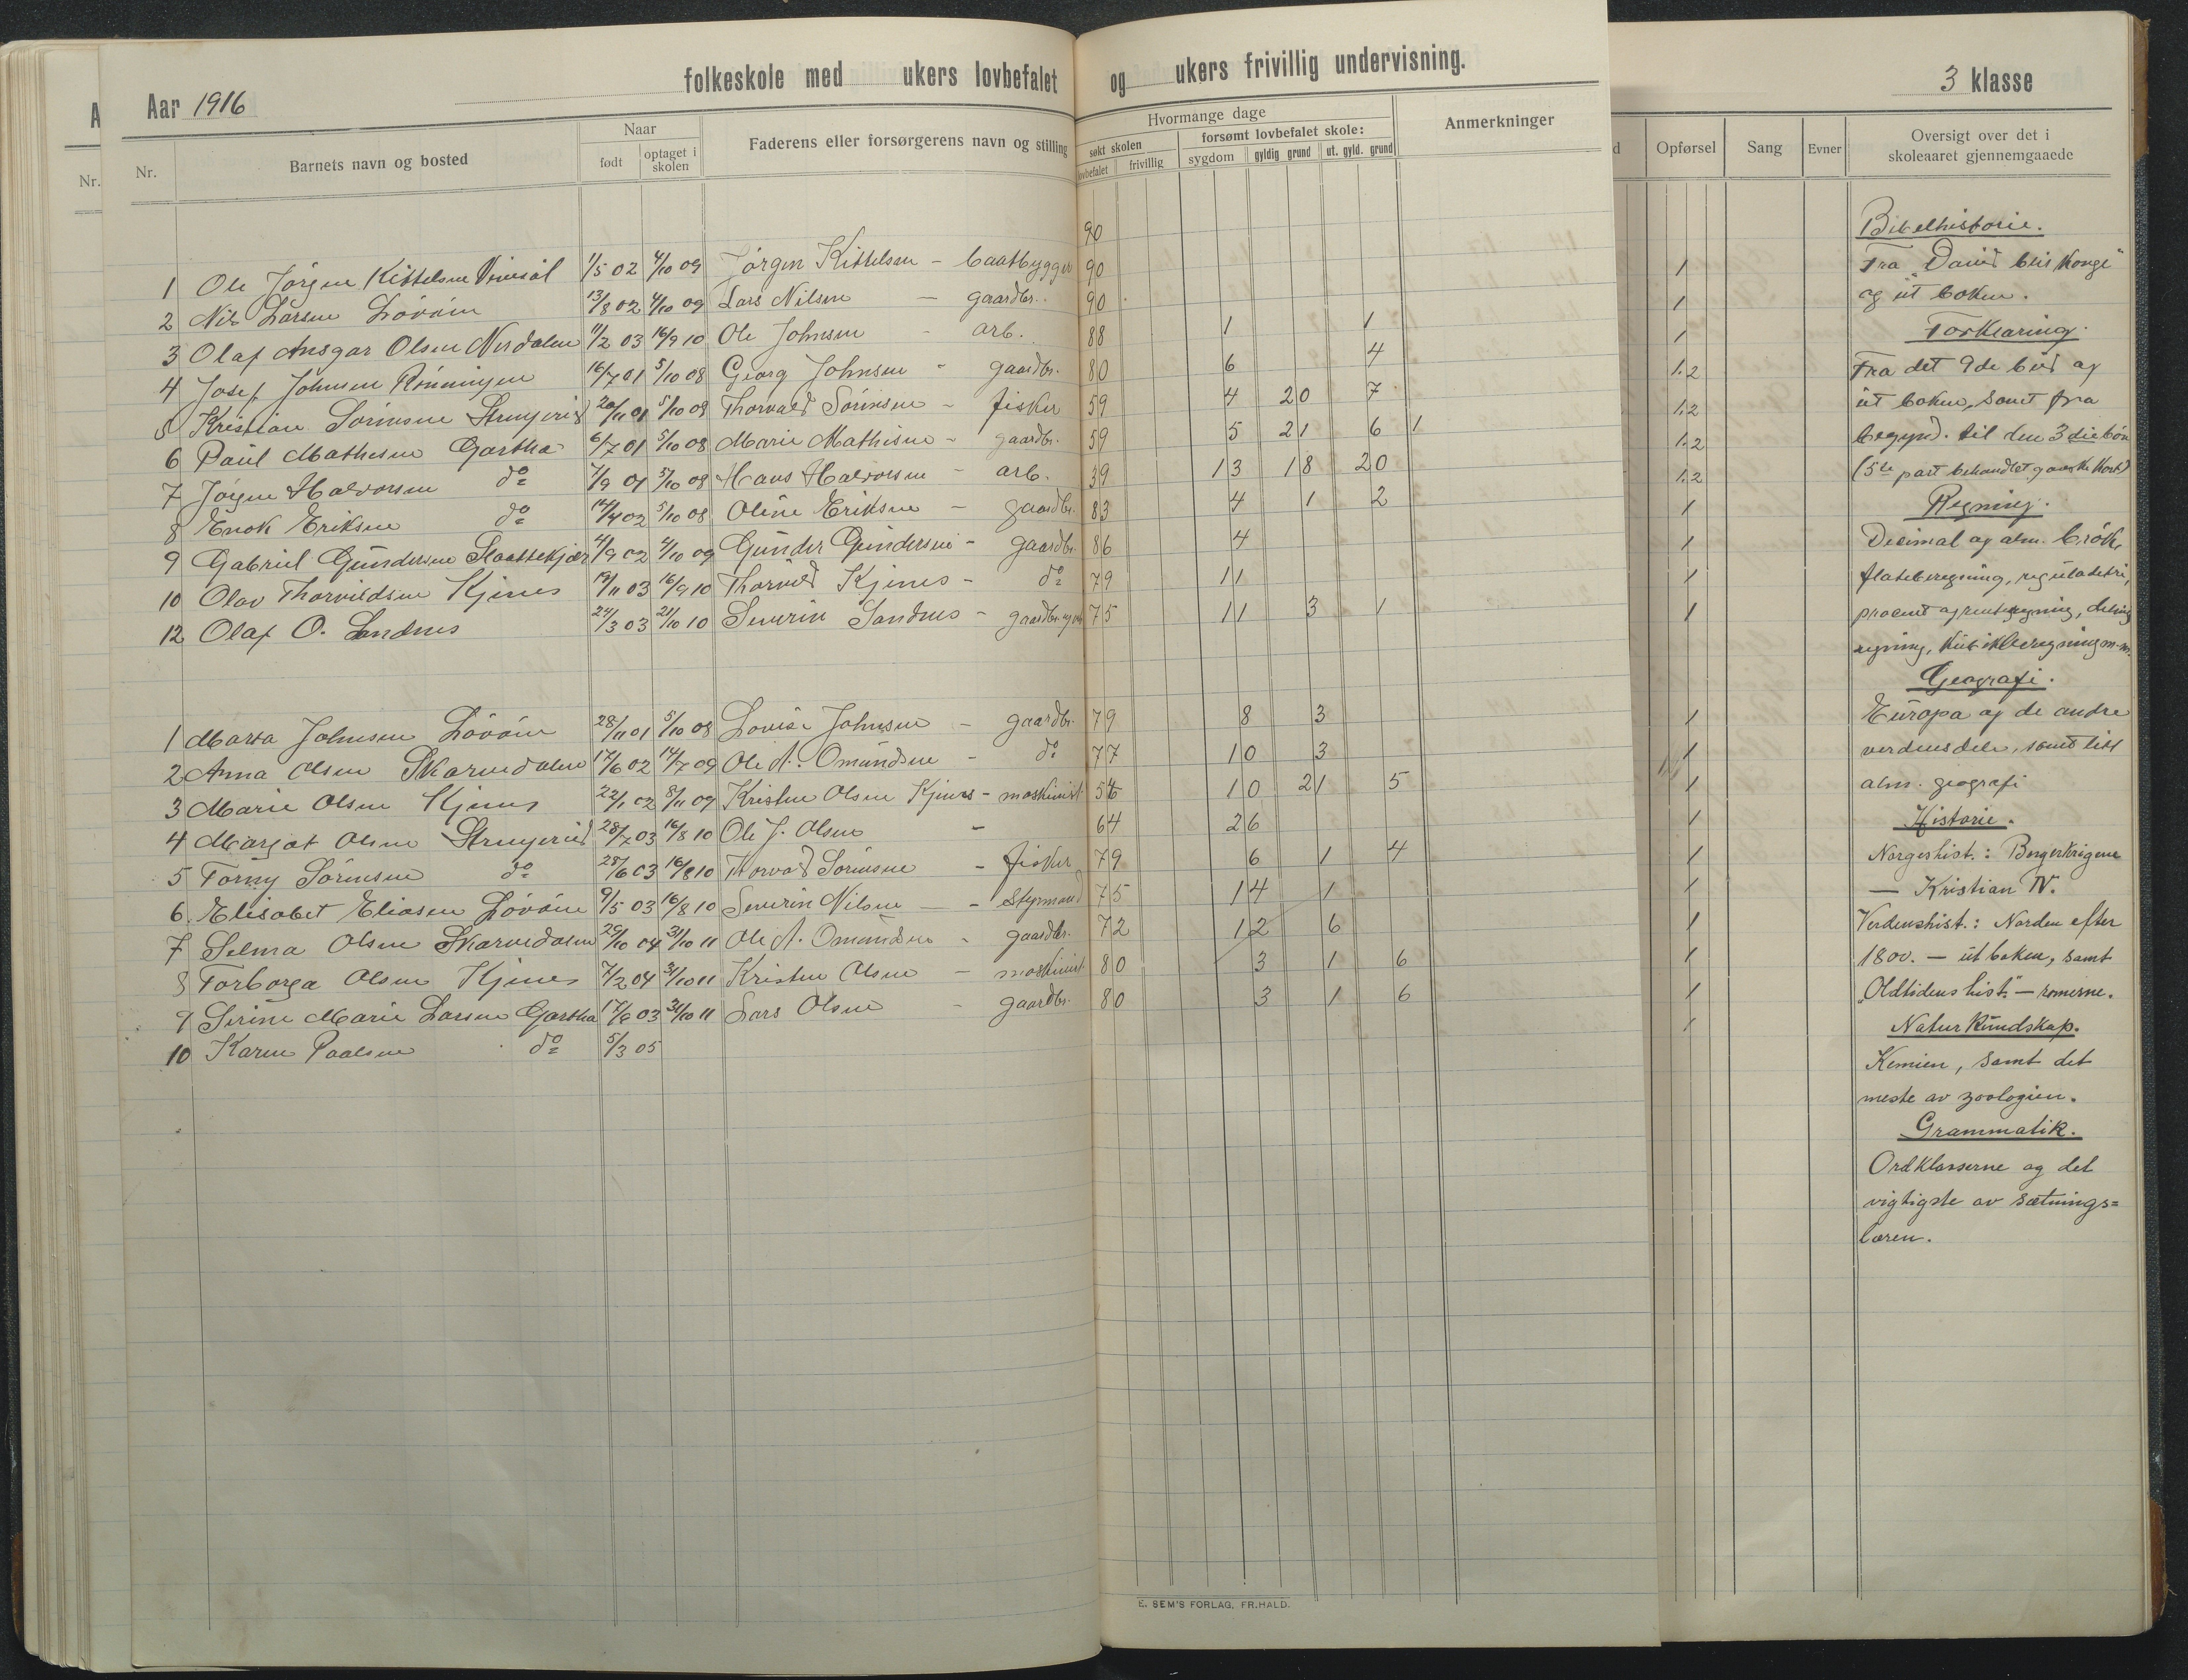 Aar 1916 folkeskole med ukers lovbefalet og ukers frivillig undervisning. 3 klasse
A
Nr.
Nr. Barnets navn og bosted Naar født optaget i skolen Faderens eller forsørgerens navn og stilling
Hvormange dage søkt skolen lovbefalet frivillig forsømt lovbefalet skole: sygdom gyldig grund ut. gyld. grund Anmerkninger
d Opførsel Sang Evner Oversigt over det i skoleaaret gjennemgaaede
90
1 Ole Jörgen Kittelsen 1/5 02 4/10 09 Jörgen Kittelsen - baatbygger 90 1
2 Nils Larsen Lövöin 13/8 02 4/10 09 Lars Nilsen — gaardbr. 90 1
3 Olaf Ansgar Olsen Nerdalen 11/2 03 16/9 10 Ole Johnsen - arb. 88 1 1 1
4 Josef Johnsen Rönningen 16/7 01 5/10 08 Georg Johnsen - gaardbr. 80 6 4 1.2
5 Kristian Sörensen 20/11 01 5/10 08 Thorvald Sörensen - fisker 59 4 20 7 1.2
6 Paul Mathisen Gartha 6/7 01 5/10 08 Marie Mathisen - gaardbr. 59 5 21 6 1 1.2
7 Jörgen Halvorsen do 7/9 01 5/10 08 Hans Halvorsen - arb. 39 13 18 20 1.2
8 Enok Eriksen do 14/4 02 5/10 08 Oline Eriksen - gaardbr. 83 4 1 2 1
9 Gabriel Gundersen 4/9 02 4/10 09 Gunder Gundersen - gaardbr. 86 4 1
10 Olav Thorvildsen Kjenes 19/11 03 16/9 10 Thorvild Kjenes - do 79 11 1
12 Olaf O. Sandnes 24/3 03 21/10 10 Severin Sandnes - gaardbr. 75 11 3 1 1
1 Marta Johnsen Lövöin 28/11 01 5/10 08 Lovise Johnsen - gaardbr. 79 8 3 1
2 Anna Olsen Skarvedalen 17/6 02 14/7 09 Ole A. Omundsen - do 77 10 3 1
3 Marie Olsen Kjenes 22/1 02 8/11 09 Kristen Olsen Kjenes - maskinist 10 21 5 1
4 Margot Olsen 28/7 03 16/8 10 Ole J. Olsen - 64 26 1
5 Torny Sörensen do 28/6 03 16/8 10 Torvald Sörensen - fisker 79 6 1 4 1
6. Elisabet Eliasen Lövöin 9/5 03 16/8 10 Severin Nilsen — - Styrmand 75 14 1 1
7 Selma Olsen Skarvedalen 29/10 04 31/10 11 Ole A. Omundsen - gaardbr. 72 12 6 1
8 Torborga Olsen Kjenes 7/2 04 31/10 11 Kristen Olsen - maskinist 80 3 1 6 1
9 Serine Marie Larsen Gartha 17/6 03 31/10 11 Lars Olsen - gaardbr. 80 3 1 6 1
10 Karen Paalsen do 5/3 05 1
Bibelhistorie.
Fra "David blir Konge"
og ut boken.
Forklaring.
Fra det 9de bud og
ut boken, samt fra
begynd. til den 3die bön
(5te part behandlet ganske kort)
Regning.
Decimal og alm. brök,
flateberegning, reguladetri,
procent og renteregning, delings
regning, kubikberegning m.m.
Geografi.
Europa og de andre
verdensdele, samt litt
alm. geografi
Historie.
Norgeshist.: Borgerkrigene
— Kristian IV.
Verdenshist.: Norden efter
1800. — ut boken, samt
"Oldtidens hist." — romerne.
Naturkundskap.
Kemien, samt det
meste av zoologien.
Grammatik.
Ordklasserne og det
vigtigste av sætnings=
læren.
E. SEM'S FORLAG, FR.HALD.